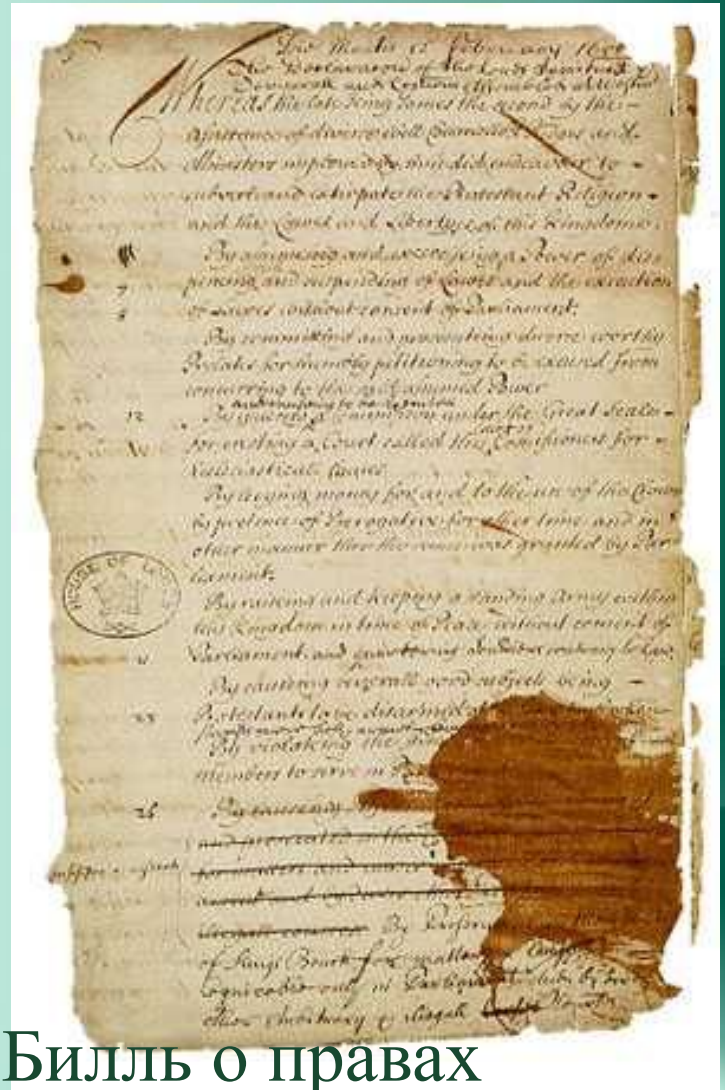 Die Martis 12 February 1688
The Declaration of the Lords Spirituall &
Temporall and Com̄ons assembled at Westm̄
Whereas the late King James the second by the
Assistance of divers evill Councellors and
Ministers imployed by him did endeavour to
subvert and extirpate the Protestant Religion
and the Lawes and Libertyes of this Kingdome.
By assuming and exercising a Power of dis
pencing and suspending of Lawes and the execution
7
8
of Lawes without consent of Parliament.
By committing and prosecuting divers worthy
Prelates for humbly petitioning to be excused from
concurring to the said assumed Power
12
By issueing a Commission under the Great Seale
for erecting a Court called the Court of Commissioners for
Ecclesiasticall Causes
By levying money for and to the use of the Crown
by pretence of Prerogative for other time and in
other manner then the same was granted by Par
liament.
HOUSE OF LORDS
By raising and keeping a standing Army within
this Kingdome in time of Peace without consent of
Parliament and quartering contrary to Law
By causing severall good subjects being
Protestants to be disarmed
By violating the
members to serve in
26
By causeing
and prosecuted in the
By
of Kings Bench for matters
cognizable only in Parliament by
other Arbitrary & illegall
Билль о правах